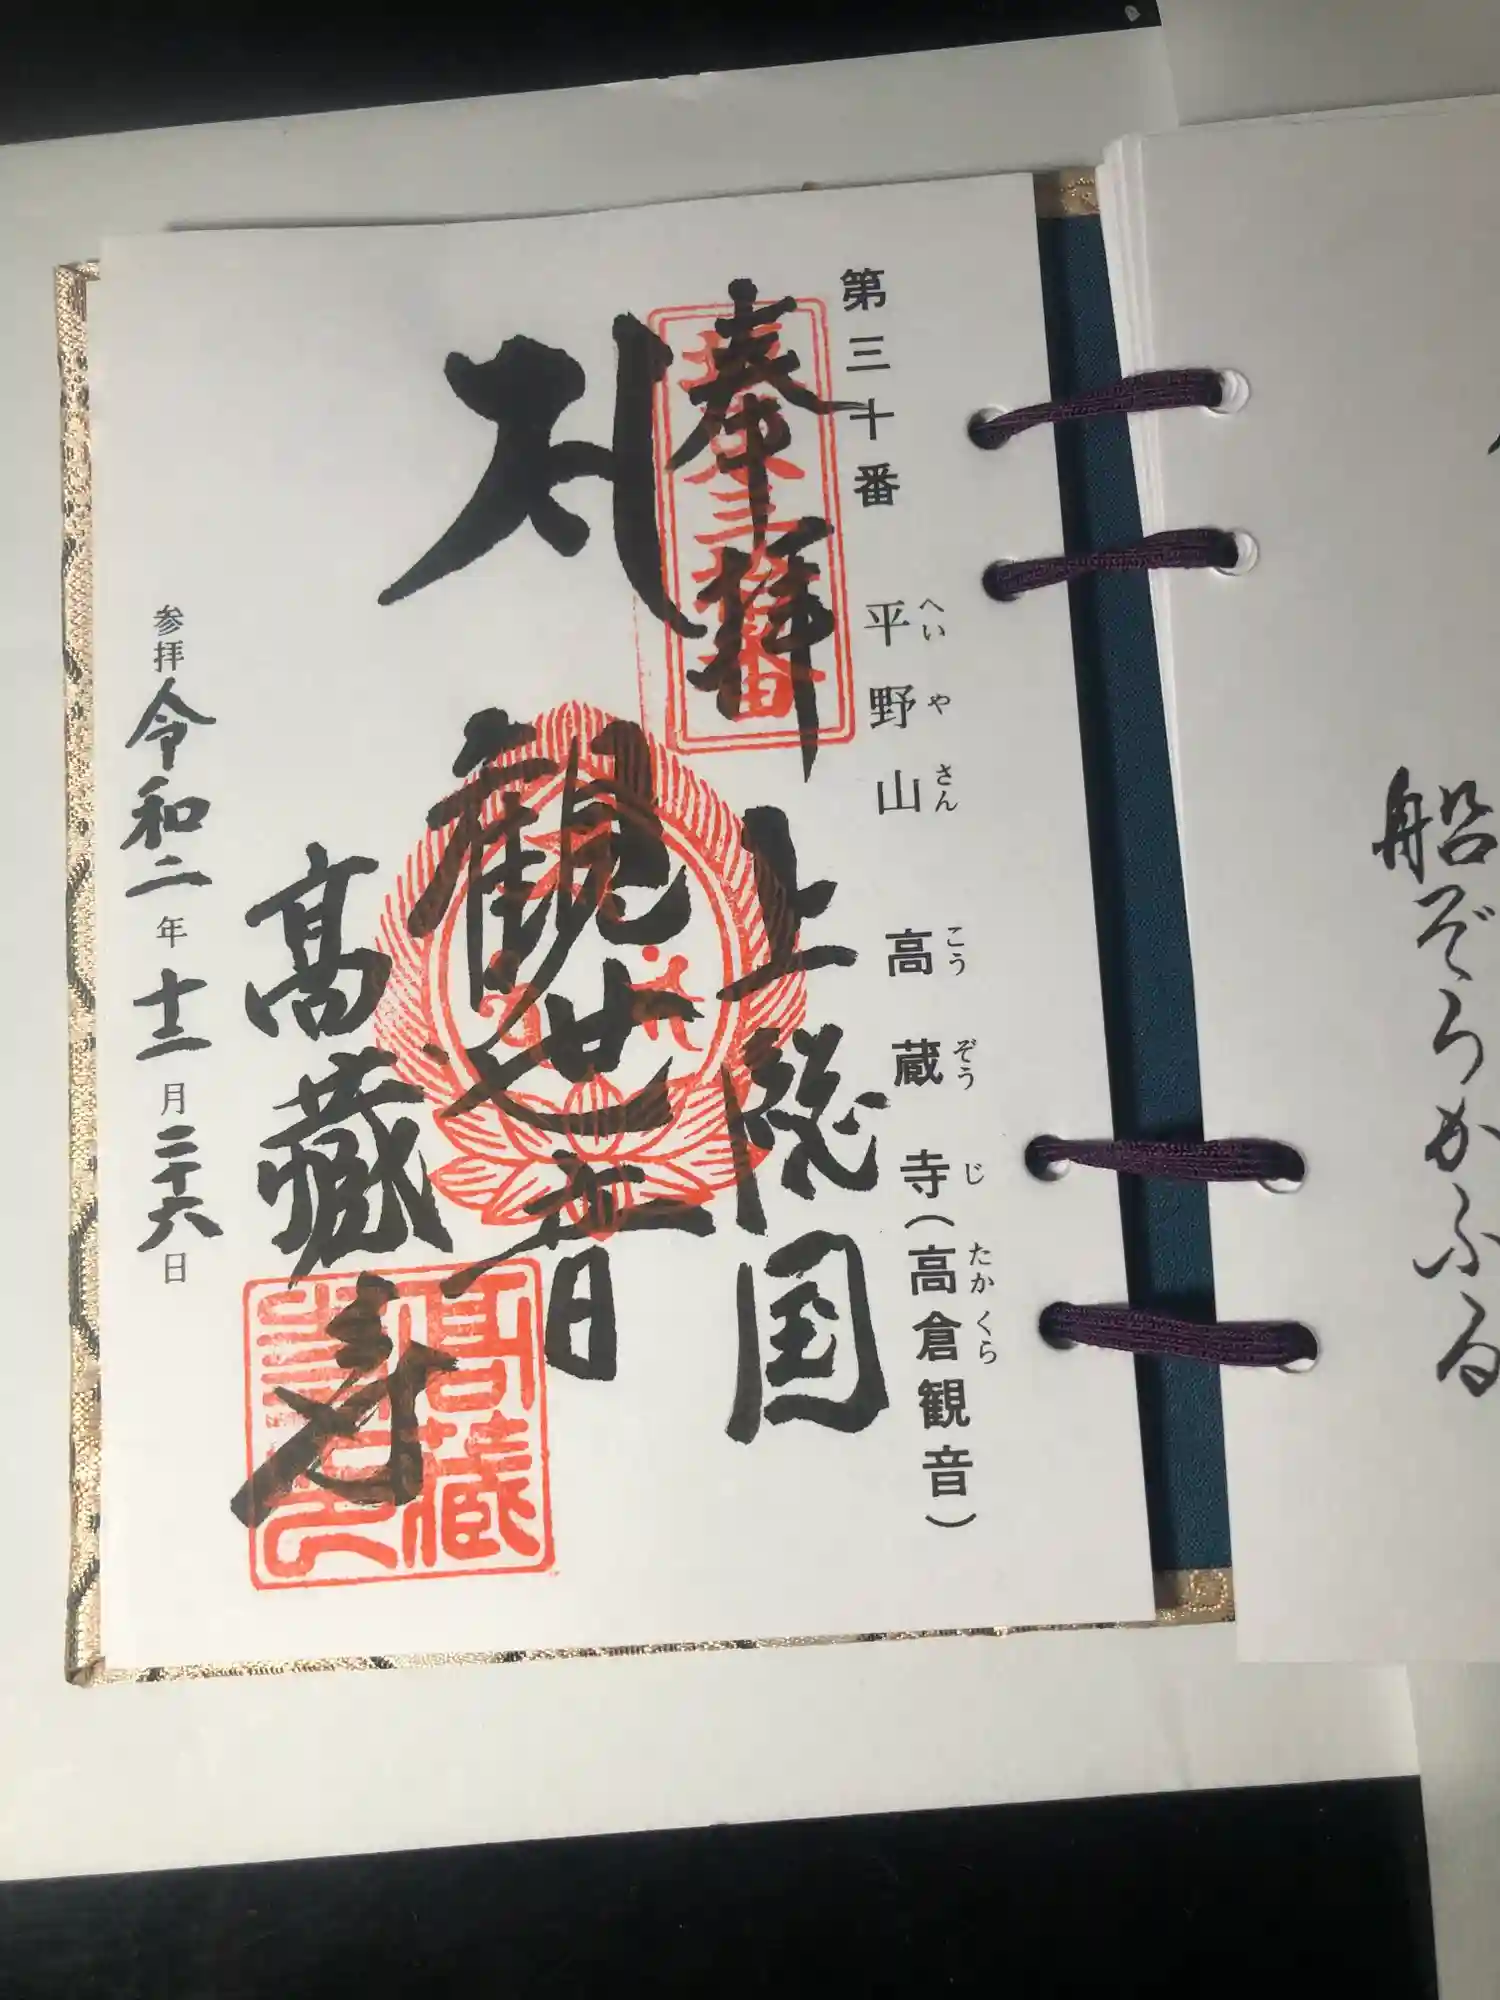 船ぞうかふる
第三十番 平野山 高蔵寺(高倉観音)
へいやさん こうぞうじ たかくら
奉拝
坂東三拾番
上総国
観世音
高蔵寺
高蔵
参拝 令和二年十二月二十六日